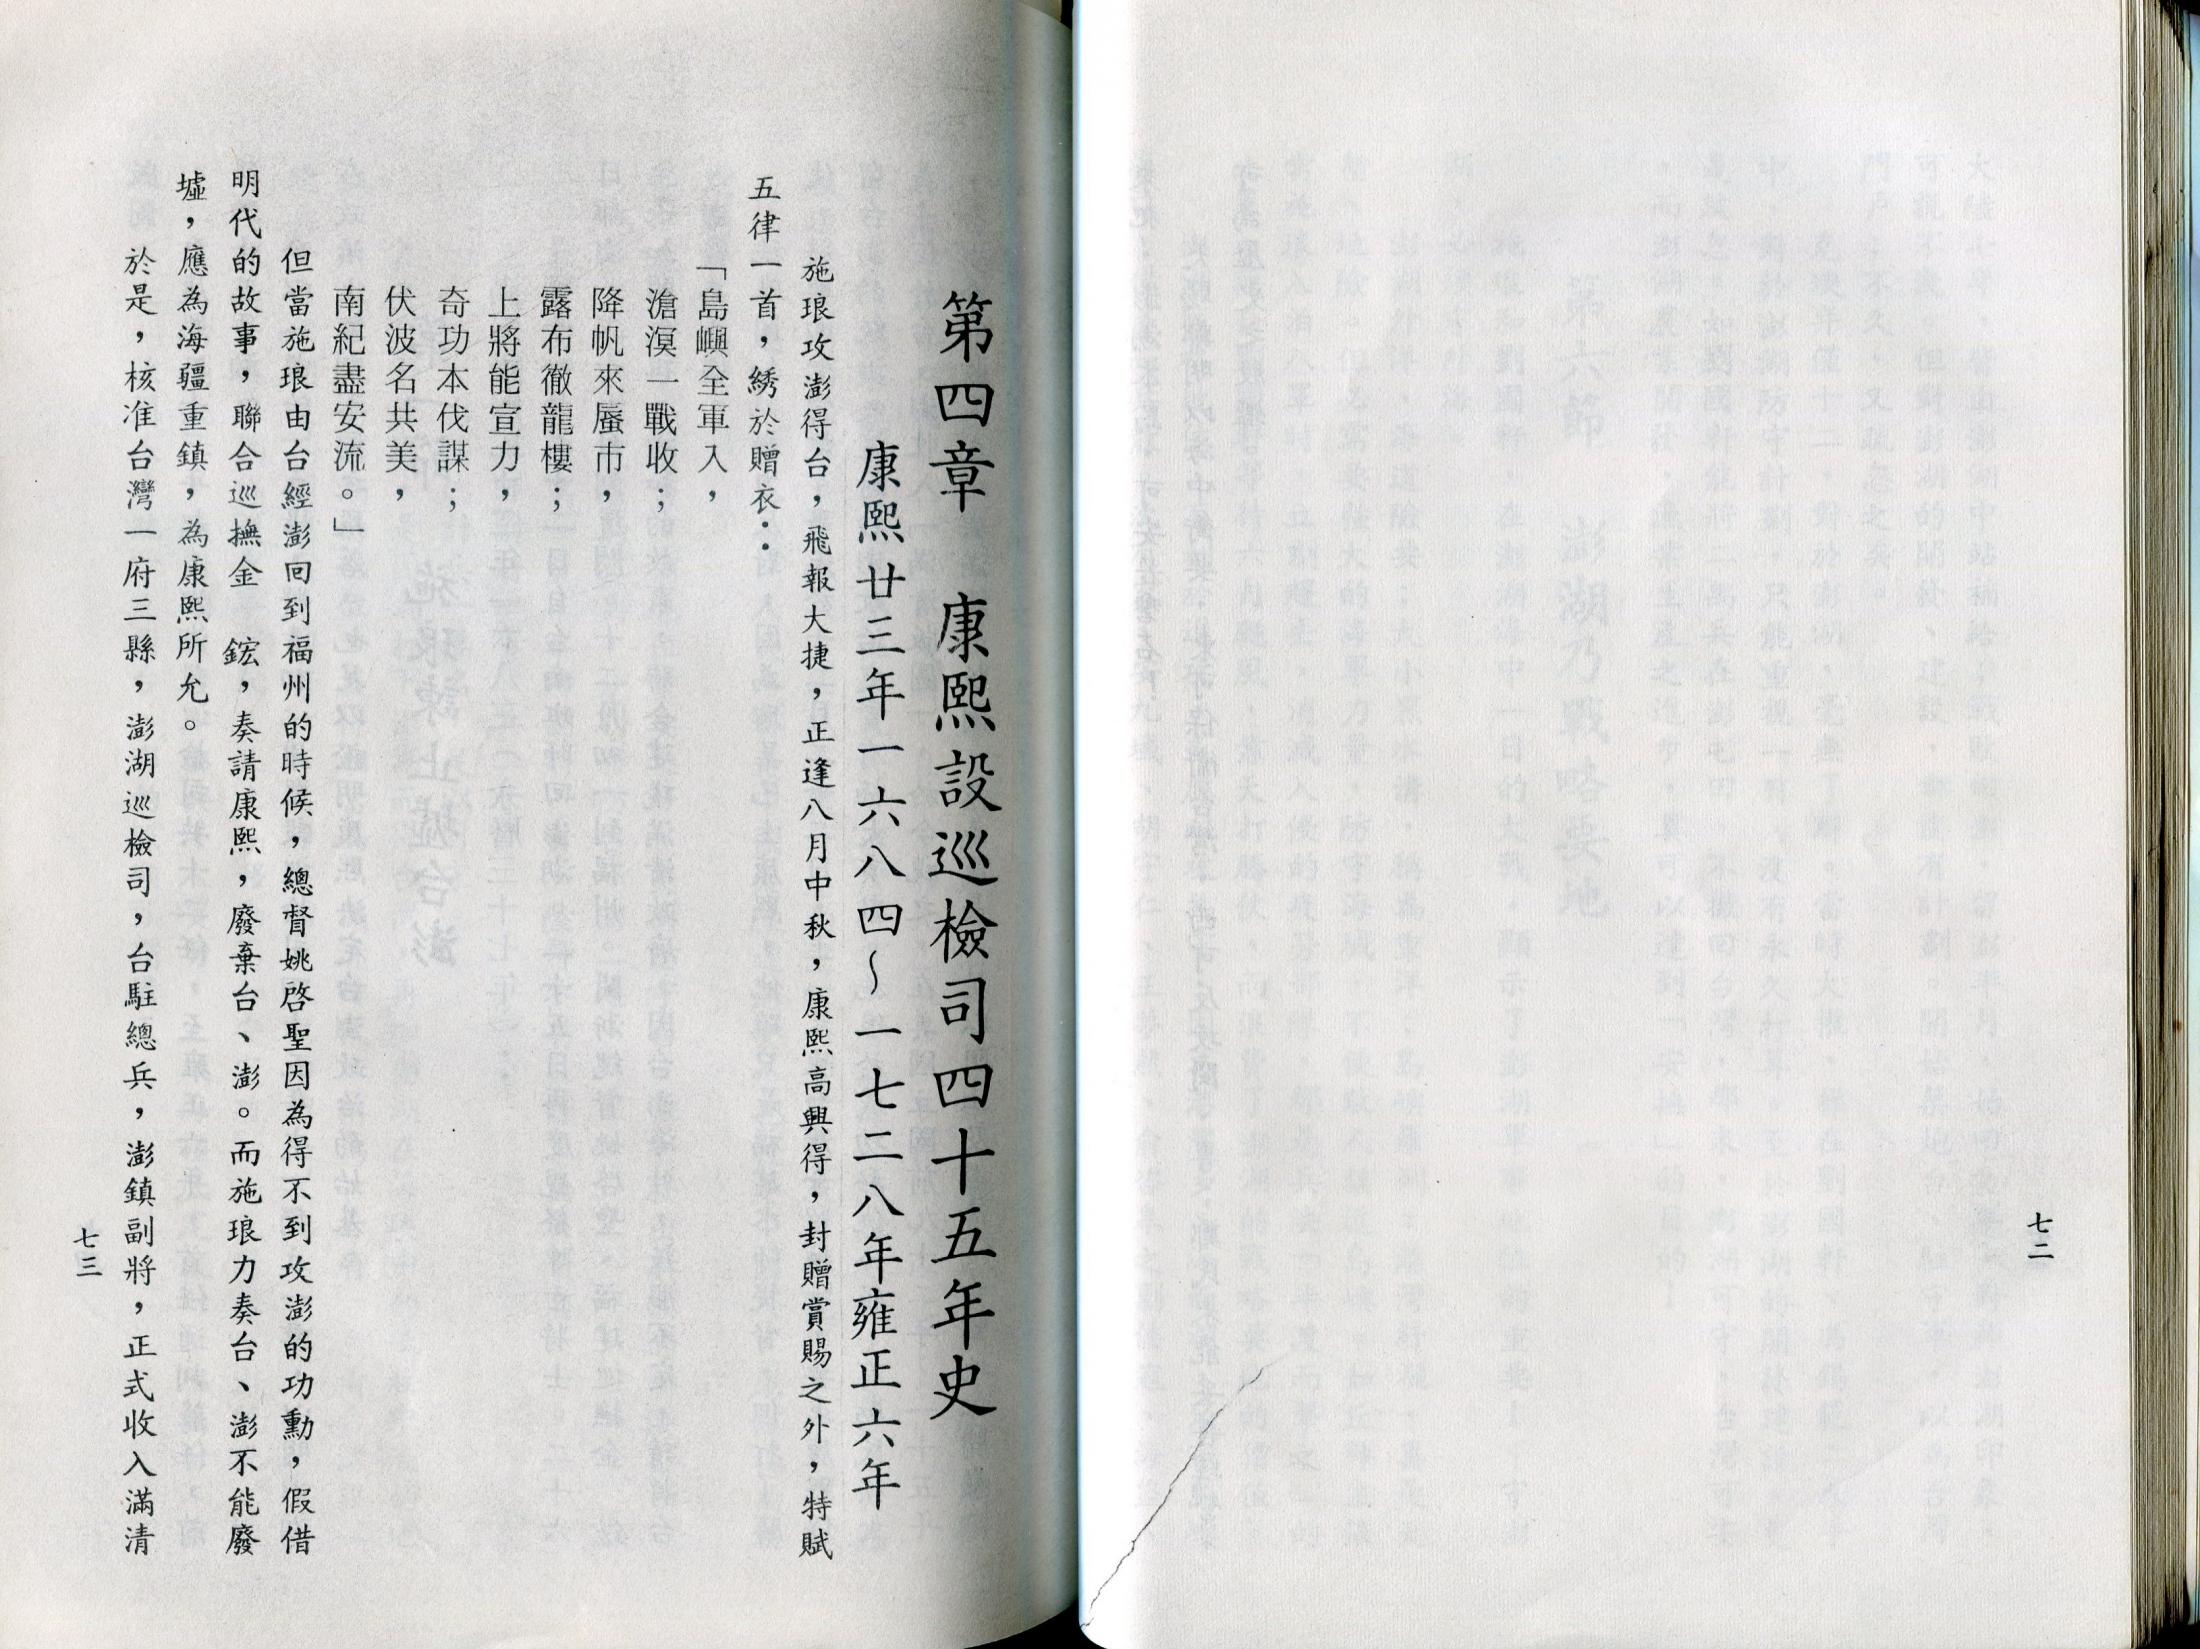 七二
第四章　康熙設巡檢司四十五年史
康熙廿三年一六八四～一七二八年雍正六年
施琅攻澎得台，飛報大捷，正逢八月中秋，康熙高興得，封贈賞賜之外，特賦
五律一首，綉於贈衣：
「島嶼全軍入，
滄溟一戰收；
降帆來蜃市，
露布徹龍樓；
上將能宣力，
奇功本伐謀；
伏波名共美，
南紀盡安流。」
但當施琅由台經澎回到福州的時候，總督姚啓聖因為得不到攻澎的功勳，假借
明代的故事，聯合巡撫金　鋐，奏請康熙，廢棄台、澎。而施琅力奏台、澎不能廢
墟，應為海疆重鎮，為康熙所允。
於是，核准台灣一府三縣，澎湖巡檢司，台駐總兵，澎鎮副將，正式收入滿清
七三